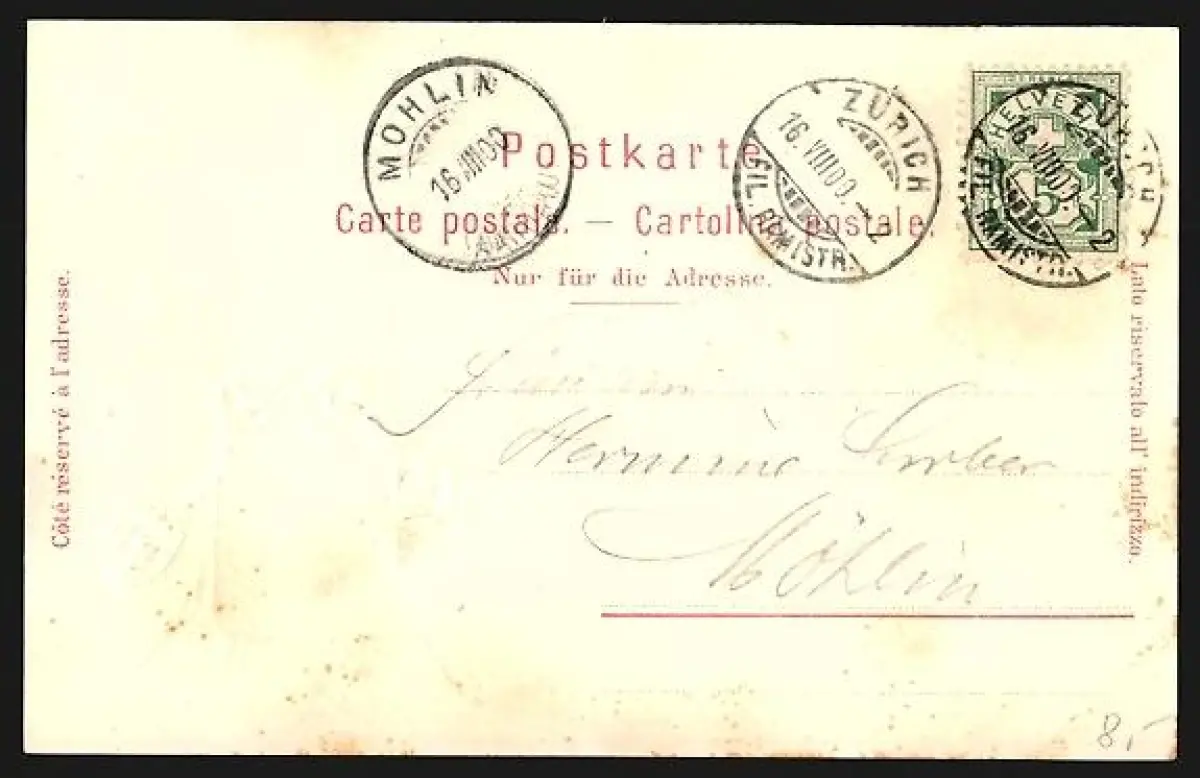 MÖHLIN
16.VIII00
(AARGAU)
ZÜRICH
16.VIII00.-12
FIL. RÄMISTR.
HELVETIA
5
ZÜRICH
16.VIII00.
2
FIL. RÄMISTR.
Postkarte
Carte postale. — Cartolina postale.
Nur für die Adresse.
Côté réservé à l'adresse.
Lato riservato all' indirizzo.
Hermine
Möhlin
8,-